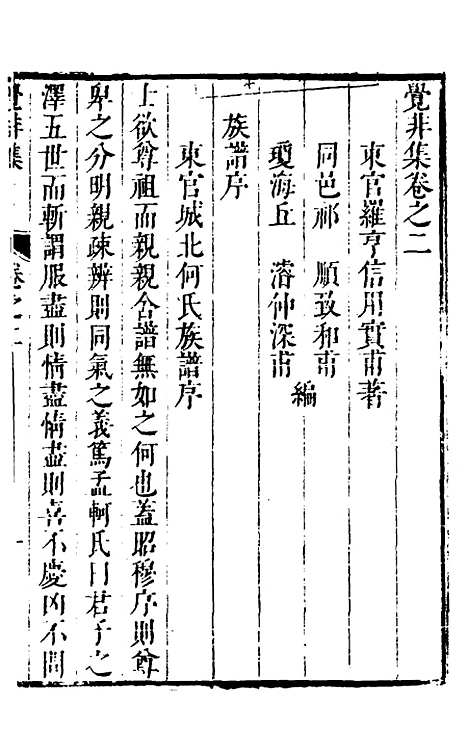 覺非集卷之二
東官羅亨信用實甫著
同邑祁　順致和甫
瓊海丘　濬仲深甫
編
族譜序
東官城北何氏族譜序
士欲尊祖而親親舍譜無如之何也蓋昭穆序則尊
卑之分明親疎辨則同氣之義篤孟軻氏曰君子之
澤五世而斬謂服盡則情盡情盡則喜不慶凶不問
覺非集
卷之二